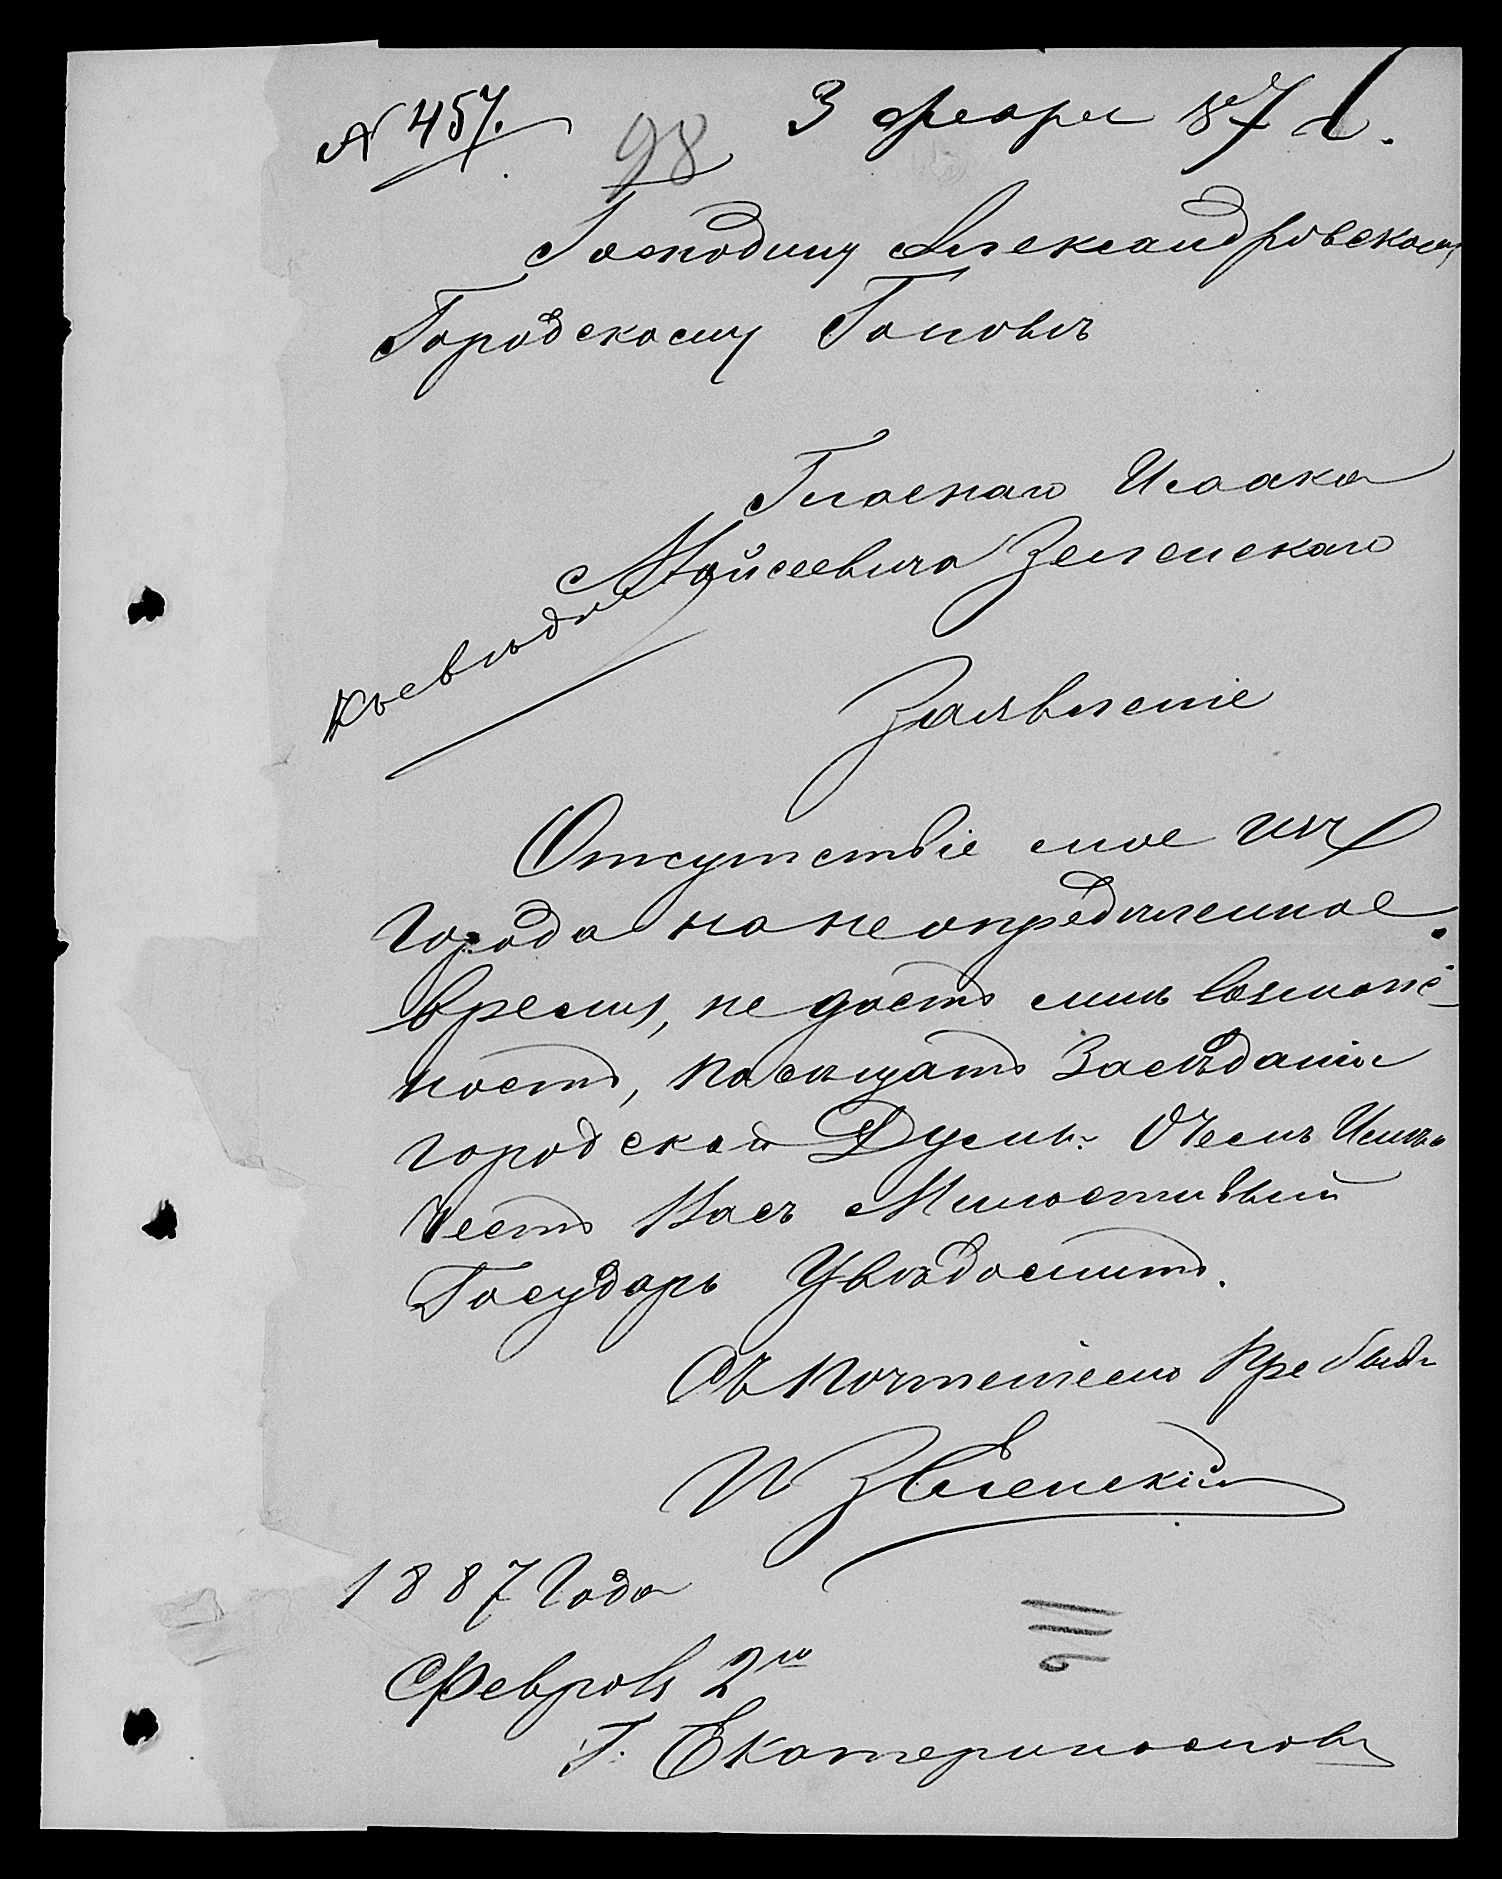 № 457.
98
3 февр 1887 г.
Господину Александровскому
Городскому Головѣ
Гласнаго Исаака
Мойсеевича Зеленскаго
Къ свѣдѣнію
Заявленіе
Отсутствіе мое изъ
города на неопредѣленное
время, не дастъ мнѣ возмож-
ность, посѣщать Засѣданія
городской Думы. О чемъ Имѣю
Честь Васъ Милостивый
Государь Увѣдомить.
Съ почтеніемъ Пребыв
И Зеленскій
1887 Года
Февраля 2го
Г. Екатеринославъ